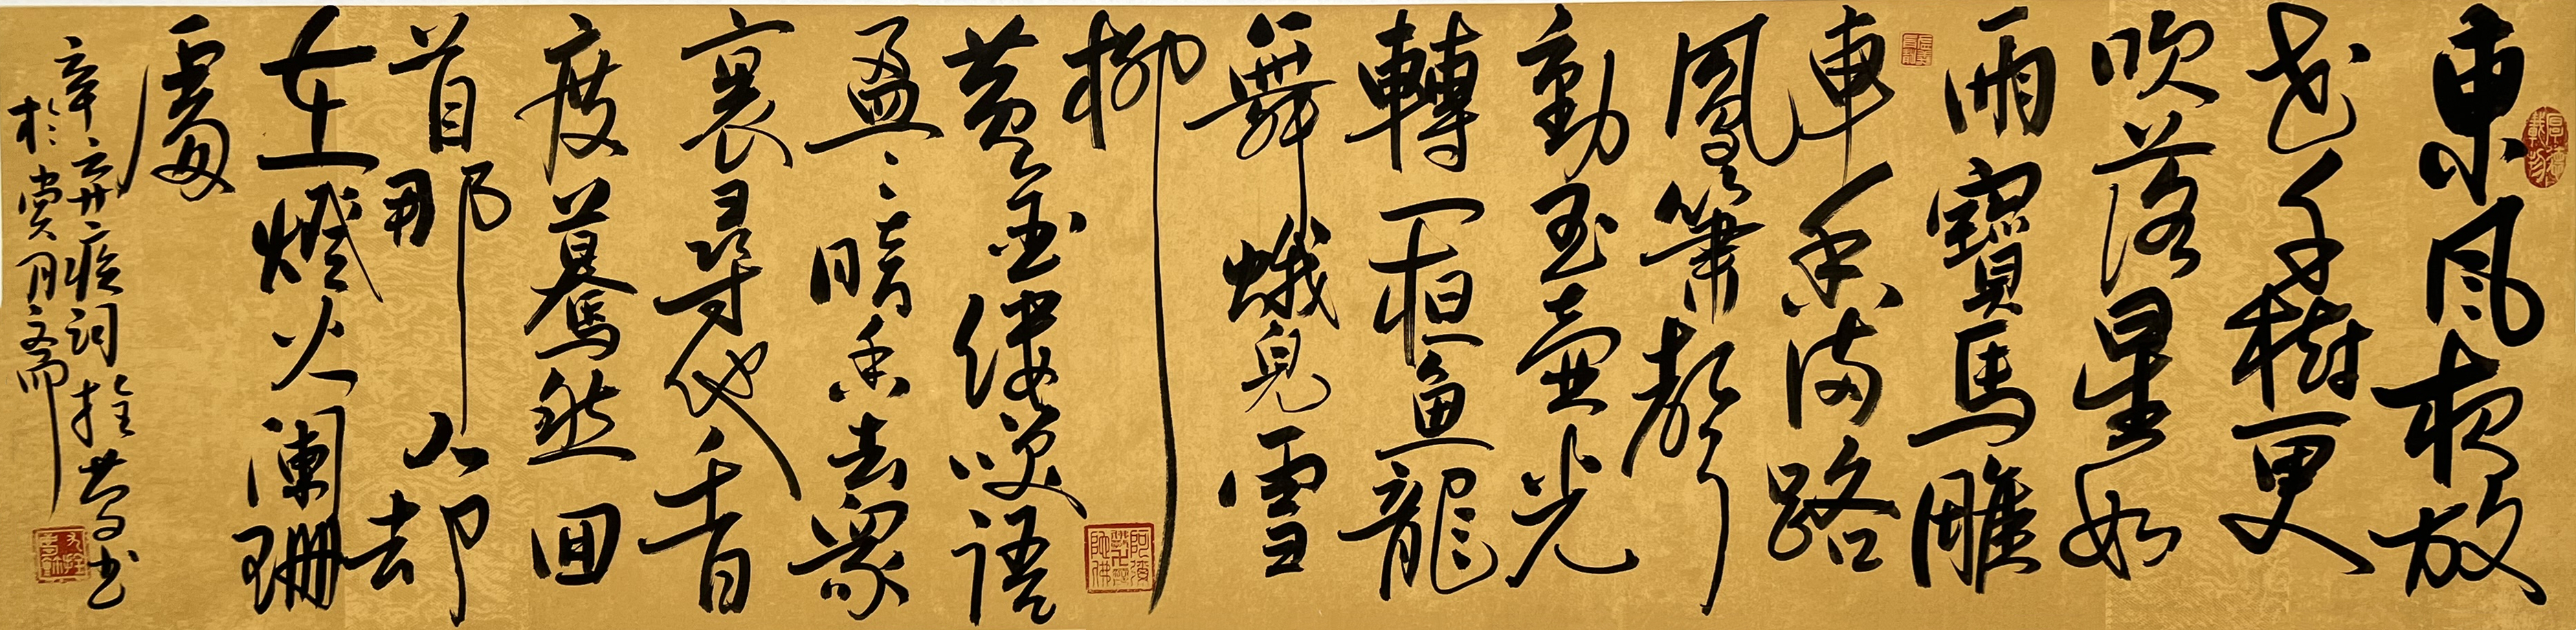 厚德載物
東風夜放
花千樹更
吹落星如
雨寶馬雕
車香滿路
鳳簫聲
動玉壺光
轉一魚龍
舞蛾兒雪
柳
黃金縷笑語
盈〻暗香去眾
裏尋他千百
度驀然回
首那人却
在燈火闌珊
處
辛棄疾詞拴書
於賞月斋